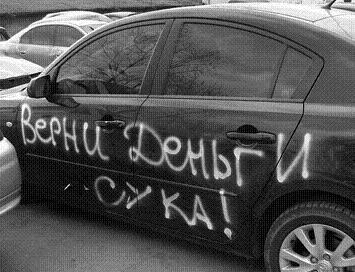 Верни Деньги
Сука!